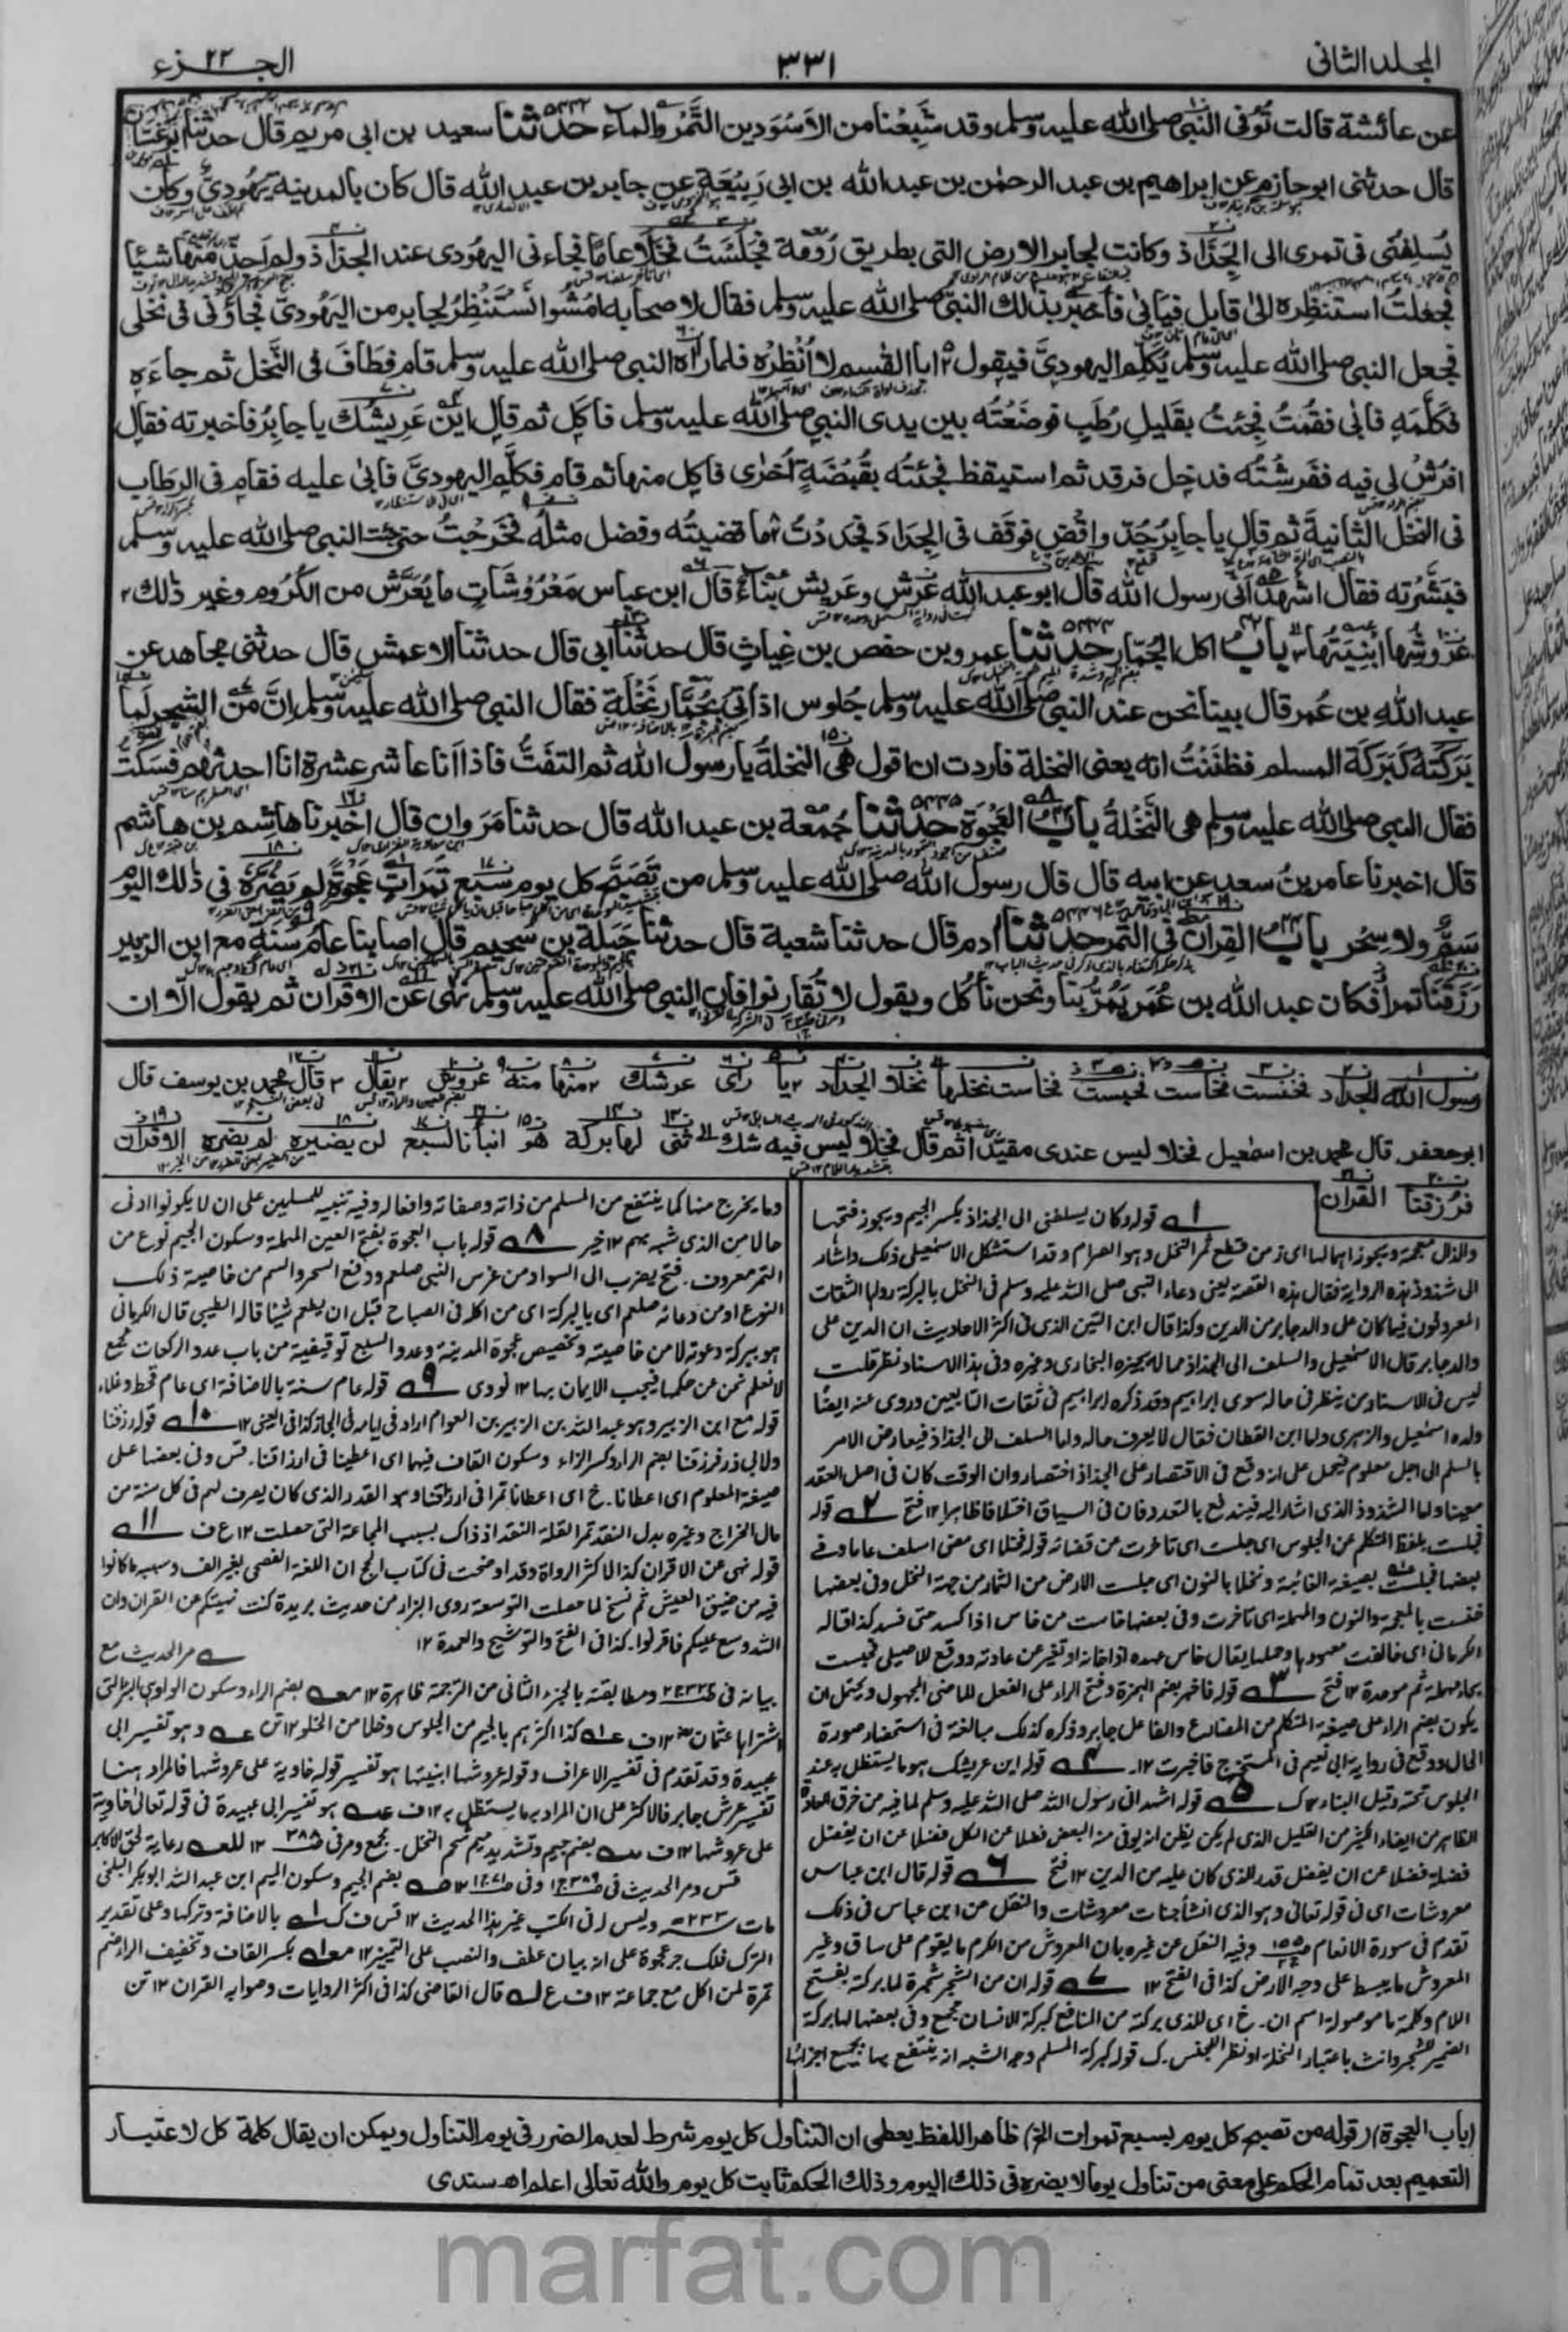 المجلد الثانی ٣٣١ الجزء ٢٢
عن عائشة قالت تُوُفی النبی صلی الله علیه وسلم وقد شَبِعْنا من الاَسْوَدین التَّمْر والماء حدثنا سعید بن ابی مریم قال حدثنا ابو غسّان
قال حدثنی ابو حازم عن ابراهیم بن عبد الرحمٰن بن عبد الله بن ابی رَبِیْعَة عن جابر بن عبد الله قال كان بالمدینة یَهُودیّ وكان
یُسلِفُنی فی تمری الی الجَذَاذ وكانت لجابر الارض التی بطریق رُوْمَة فجَلَسَتْ فخَلَا عامًا فجاءنی الیهودی عند الجذاذ ولم اَجدّ منها شیئا
فجعلتُ استنظِره الیٰ قابل فیابیٰ فاُخبِر بذٰلك النبیّ صلی الله علیه وسلم فقال لاصحابه امْشُوا نَسْتَنْظِرْ لجابر من الیَهُودیّ فجاؤنی فی نخلی
فجعل النبی صلی الله علیه وسلم یُكلّم الیهودیَّ فیقول ابا القٰسم لا اُنْظِرُه فلما راٰه النبی صلی الله علیه وسلم قام فطَافَ فی النَّخل ثم جاءه
فكَلَّمَه فابٰی فقُمْتُ فجِئتُ بقَلیلِ رُطَبٍ فوضَعْتُه بین یدی النبی صلی الله علیه وسلم فاكَل ثم قال این عَرِیشُك یا جابِرُ فاخبرته فقال
افرُشْ لی فیه ففَرشْتُه فدخل فرقد ثم استیقظ فجئتُه بقُبْضَةٍ اُخرٰی فاكل منها ثم قام فكلّم الیهودیَّ فابیٰ علیه فقام فی الرِطَاب
فی النخل الثانیةَ ثم قال یا جابِرُ جُدّ واقْضِ فوقَف فی الجِدَاد فجَددْتُ منها ما قضیتُه وفضل مثلُه فخَرجْتُ حتی جئت النبی صلی الله علیه وسلم
فبَشَّرْته فقال اشهد انّی رسول الله قال ابو عبد الله عَرْش وعَرِیش بِناءٌ قال ابن عباس مَعْرُوْشَاتٍ ما یُعَرَّش من الكُرُوم وغیر ذٰلك
عُرُوشُها اَبْنِیَتُها باب اكل الجُمّار حدثنا عمر بن حفص بن غِیاثٍ قال حدثنا ابی قال حدثنا الاعمش قال حدثنی مجاهد عن
عبد الله بن عُمر قال بینا نحن عند النبی صلی الله علیه وسلم جُلوس اذ اُتِیَ بجُمَّار نَخْلَةٍ فقال النبی صلی الله علیه وسلم اِنَّ مِنَ الشجر لَمَا
بَرَكتُه كَبَرَكَة المسلم فظَنَنْتُ انه یعنی النخلة فاردت ان اقول هی النخلةُ یا رسول الله ثم التفَتُّ فاذا انا عاشر عشرة انا احدثهم فسَكَتُّ
فقال النبی صلی الله علیه وسلم هی النَّخْلَةُ باب العَجْوَة حدثنا جُمْعَة بن عبد الله قال حدثنا مَرْوان قال اخبرنا هاشِم بن هاشم
قال اخبرنا عامر بنُ سعد عن ابیه قال قال رسول الله صلی الله علیه وسلم من تَصَبَّح كل یوم سَبْعَ تَمَراتٍ عَجْوَةً لم یَضُرَّه فی ذٰلك الیوم
سَمٌّ ولا سِحْر باب القِرانِ فی التمر حدثنا اٰدم قال حدثنا شعبة قال حدثنا جَبَلة بن سُحَیم قال اصابنا عامُ سَنَةٍ مع ابن الزبیر
رَزَقَنَا تمرا فكان عبد الله بن عُمَر یَمُرّ بنا ونحن ناْكُل ویقول لا تُقَارِنوا فان النبی صلی الله علیه وسلم نهی عن الاقران ثم یقول الّا ان
رسول الله الجداد فخنست نخاست فحبست نخاست نخلها نخلا الجداد یا رأی عرشك منها منه عروش یقال قال محمد بن یوسف قال
ابو جعفر قال محمد بن اسمٰعیل فخلا لیس عندی مقیدا ثم قال فخلا لیس فیه شك ثنی لها بركة هو انبأنا لسبع لن یضیره لم یضره الاقران
فرُزقنا القران
١ قوله وكان یسلفنی الی الجذاذ بكسر الجیم ویجوز فتحها
والذال معجمة ویجوز اهمالها ای زمن قطع ثمر النخل وهو الصرام وقد استشكل الاسمٰعیلی ذلك واشار
الی شذوذ هذه الروایة فقال هذه القصة یعنی دعاء النبی صلی الله علیه وسلم فی النخل بالبركة رواها الثقات
المعروفون فیما كان علی والد جابر من الدین وكذا قال ابن التین الذی فی اكثر الاحادیث ان الدین علی
والد جابر قال الاسمٰعیلی والسلف الی الجذاذ مما لا یجیزه البخاری وغیره وفی هذا الاسناد نظر قلت
لیس فی الاسناد من ینظر فی حاله سوی ابراهیم وقد ذكره ابن حبان فی ثقات التابعین وروی عنه ایضا
ولده اسمٰعیل والزهری واما ابن القطان فقال لا یعرف حاله واما السلف الی الجذاذ فیعارض الامر
بالسلم الی اجل معلوم فیحمل علی انه وقع فی الاقتصار علی الجذاذ اختصار وان الوقت كان فی اصل العقد
معینا واما الشذوذ الذی اشار الیه فیندفع بالتعدد فان فی السیاق اختلافا ظاهرا ١٢ فتح ٢ قوله
فجلست بلفظ المتكلم من الجلوس ای جلست ای تاخرت عن قضائه قوله فخلا ای مضی السلف عاما وفی
بعضها فجلست بصیغة الغائبة ونخلا بالنون ای جلست الارض من الثمار من جهة النخل وفی بعضها
فخنست بالمعجمة والنون والمهملة ای تاخرت وفی بعضها خاست من خاس اذا كسد حتی فسد كذا قاله
الكرمانی ای خالفت معهودها وحملها یقال خاس عهده اذا خانه او تغیر عن عادته ووقع للاصیلی فحبست
بحاء مهملة ثم موحدة ١٢ فتح ٣ قوله فاُخبر بضم الهمزة وفتح الراء علی الفعل الماضی المجهول ویحتمل ان
یكون بضم الراء علی صیغة المتكلم من المضارع والفاعل جابر وذكره كذلك مبالغة فی استحضار صورة
الحال ووقع فی روایة ابی نعیم فی المستخرج فاخبرت ١٢ ٤ قوله این عریشك هو ما یستظل به عند
الجلوس تحته وقیل البناء ١٢ ك ٥ قوله اشهد انی رسول الله صلی الله علیه وسلم لما فیه من خرق العادة
الظاهر من ایفاء الكثیر من القلیل الذی لم یكن یظن انه یوفی منه البعض فضلا عن الكل فضلا عن ان یفضل
فضلة فضلا عن ان یفضل قدر الذی كان علیه من الدین ١٢ فتح ٦ قوله قال ابن عباس
معروشات ای فی قوله تعالیٰ وهو الذی انشأ جنات معروشات والنقل عن ابن عباس فی ذلك
تقدم فی سورة الانعام وفیه النقل عن غیره بان المعروش من الكرم ما یقوم علی ساق وغیر
المعروش ما یبسط علی وجه الارض كذا فی الفتح ١٢ ٧ قوله ان من الشجر شجرة لما بركته بفتح
اللام وكلمة ما موصولة اسم ان. خ ای للذی بركته من المنافع كبركة الانسان مجمع وفی بعضها لها بركة
الضمیر للشجر وانث باعتبار النخلة او نظر للجنس. ك قوله كبركة المسلم وجه الشبه انه ینتفع بها بجمیع اجزائها
وما یخرج منها كما ینتفع من المسلم من ذاته وصفاته وافعاله وفیه تنبیه للمسلمین علی ان لا یكونوا ادنی
حالا من الذی شبه بهم ١٢ خیر ٨ قوله باب العجوة بفتح العین المهملة وسكون الجیم نوع من
التمر معروف. فتح یضرب الی السواد من غرس النبی صلعم ودفع السحر والسم من خاصیة ذلك
النوع او من دعائه صلعم ای بالبركة ای من اكله فی الصباح قبل ان یطعم شیئا قاله الطیبی قال الكرمانی
هو ببركة دعوته لا من خاصیته وتخصیص عجوة المدینة وعدد السبع توقیفیة من باب عدد الركعات مجمع
لا نعلم نحن عن حكمها فیجب الایمان بها ١٢ نووی ٩ قوله عام سنة بالاضافة ای عام قحط وغلاء
قوله مع ابن الزبیر وهو عبد الله بن الزبیر بن العوام اراد فی ایامه فی الحجاز كذا فی العینی ١٢ ١٠ قوله رزقنا
ولابی ذر فرزقنا بضم الراء وكسر الزاء وسكون القاف فیهما ای اعطینا فی ارزاقنا. قس وفی بعضها علی
صیغة المعلوم ای اعطانا. خ ای اعطانا تمرا فی ارزاقنا وهو القدر الذی كان یصرف لهم فی كل سنة من
مال الخراج وغیره بدل النقد تمرا لقلة النقد اذ ذاك بسبب المجاعة التی حصلت ١٢ ع ف ١١
قوله نهی عن الاقران كذا لاكثر الرواة وقد اوضحت فی كتاب الحج ان اللغة الفصحی بغیر الف وسببه ما كانوا
فیه من ضیق العیش ثم نسخ لما حصلت التوسعة روی البزار من حدیث بریدة كنت نهیتكم عن القران وان
الله وسع علیكم فاقرنوا. كذا فی الفتح والتوشیح والعمدة ١٢ مر الحدیث مع
بیانه فی ومطابقته بالجزء الثانی من الترجمة ظاهرة ١٢ بضم الراء وسكون الواو هی البئر التی
اشتراها عثمان كذا اكثرهم بالجیم من الجلوس وخلا من الخلو ١٢ وهو تفسیر ابی
عبیدة وقد تقدم فی تفسیر الاعراف وقوله عروشها ابنیتها هو تفسیر قوله خاویة علی عروشها فالمراد هنا
تفسیر عرش جابر فالاكثر علی ان المراد به ما یستظل به ١٢ ف هو تفسیر ابی عبیدة فی قوله تعالیٰ خاویة
علی عروشها ١٢ ف بضم جیم وتشدید میم شحم النخل. مجمع ومر فی ١٢ رعایة لحق الاكابر
قس ومر الحدیث فی وفی بضم الجیم وسكون المیم ابن عبد الله ابو بكر البلخی
مات سنة ٢٣٣ ولیس له فی الكتب غیر هذا الحدیث ١٢ قس ف ك بالاضافة وتركها وعلی تقدیر
الترك فلك جر عجوة علی انه بیان عطف والنصب علی التمییز ١٢ بكسر القاف وتخفیف الراء ضم
تمرة لمن اكل مع جماعة ١٢ ف ع قال القاضی كذا فی اكثر الروایات وصوابه القران ١٢ تن
(باب العجوة) (قوله من تصبح كل یوم بسبع تمرات الخ) ظاهر اللفظ یعطی ان التناول كل یوم شرط لعدم الضرر فی یوم التناول ویمكن ان یقال كلمة كل لاعتبار
التعمیم بعد تمام الحكم علی معنی من تناول یوما لا یضره فی ذلك الیوم وذلك الحكم ثابت كل یوم والله تعالی اعلم اھ سندی
marfat.com